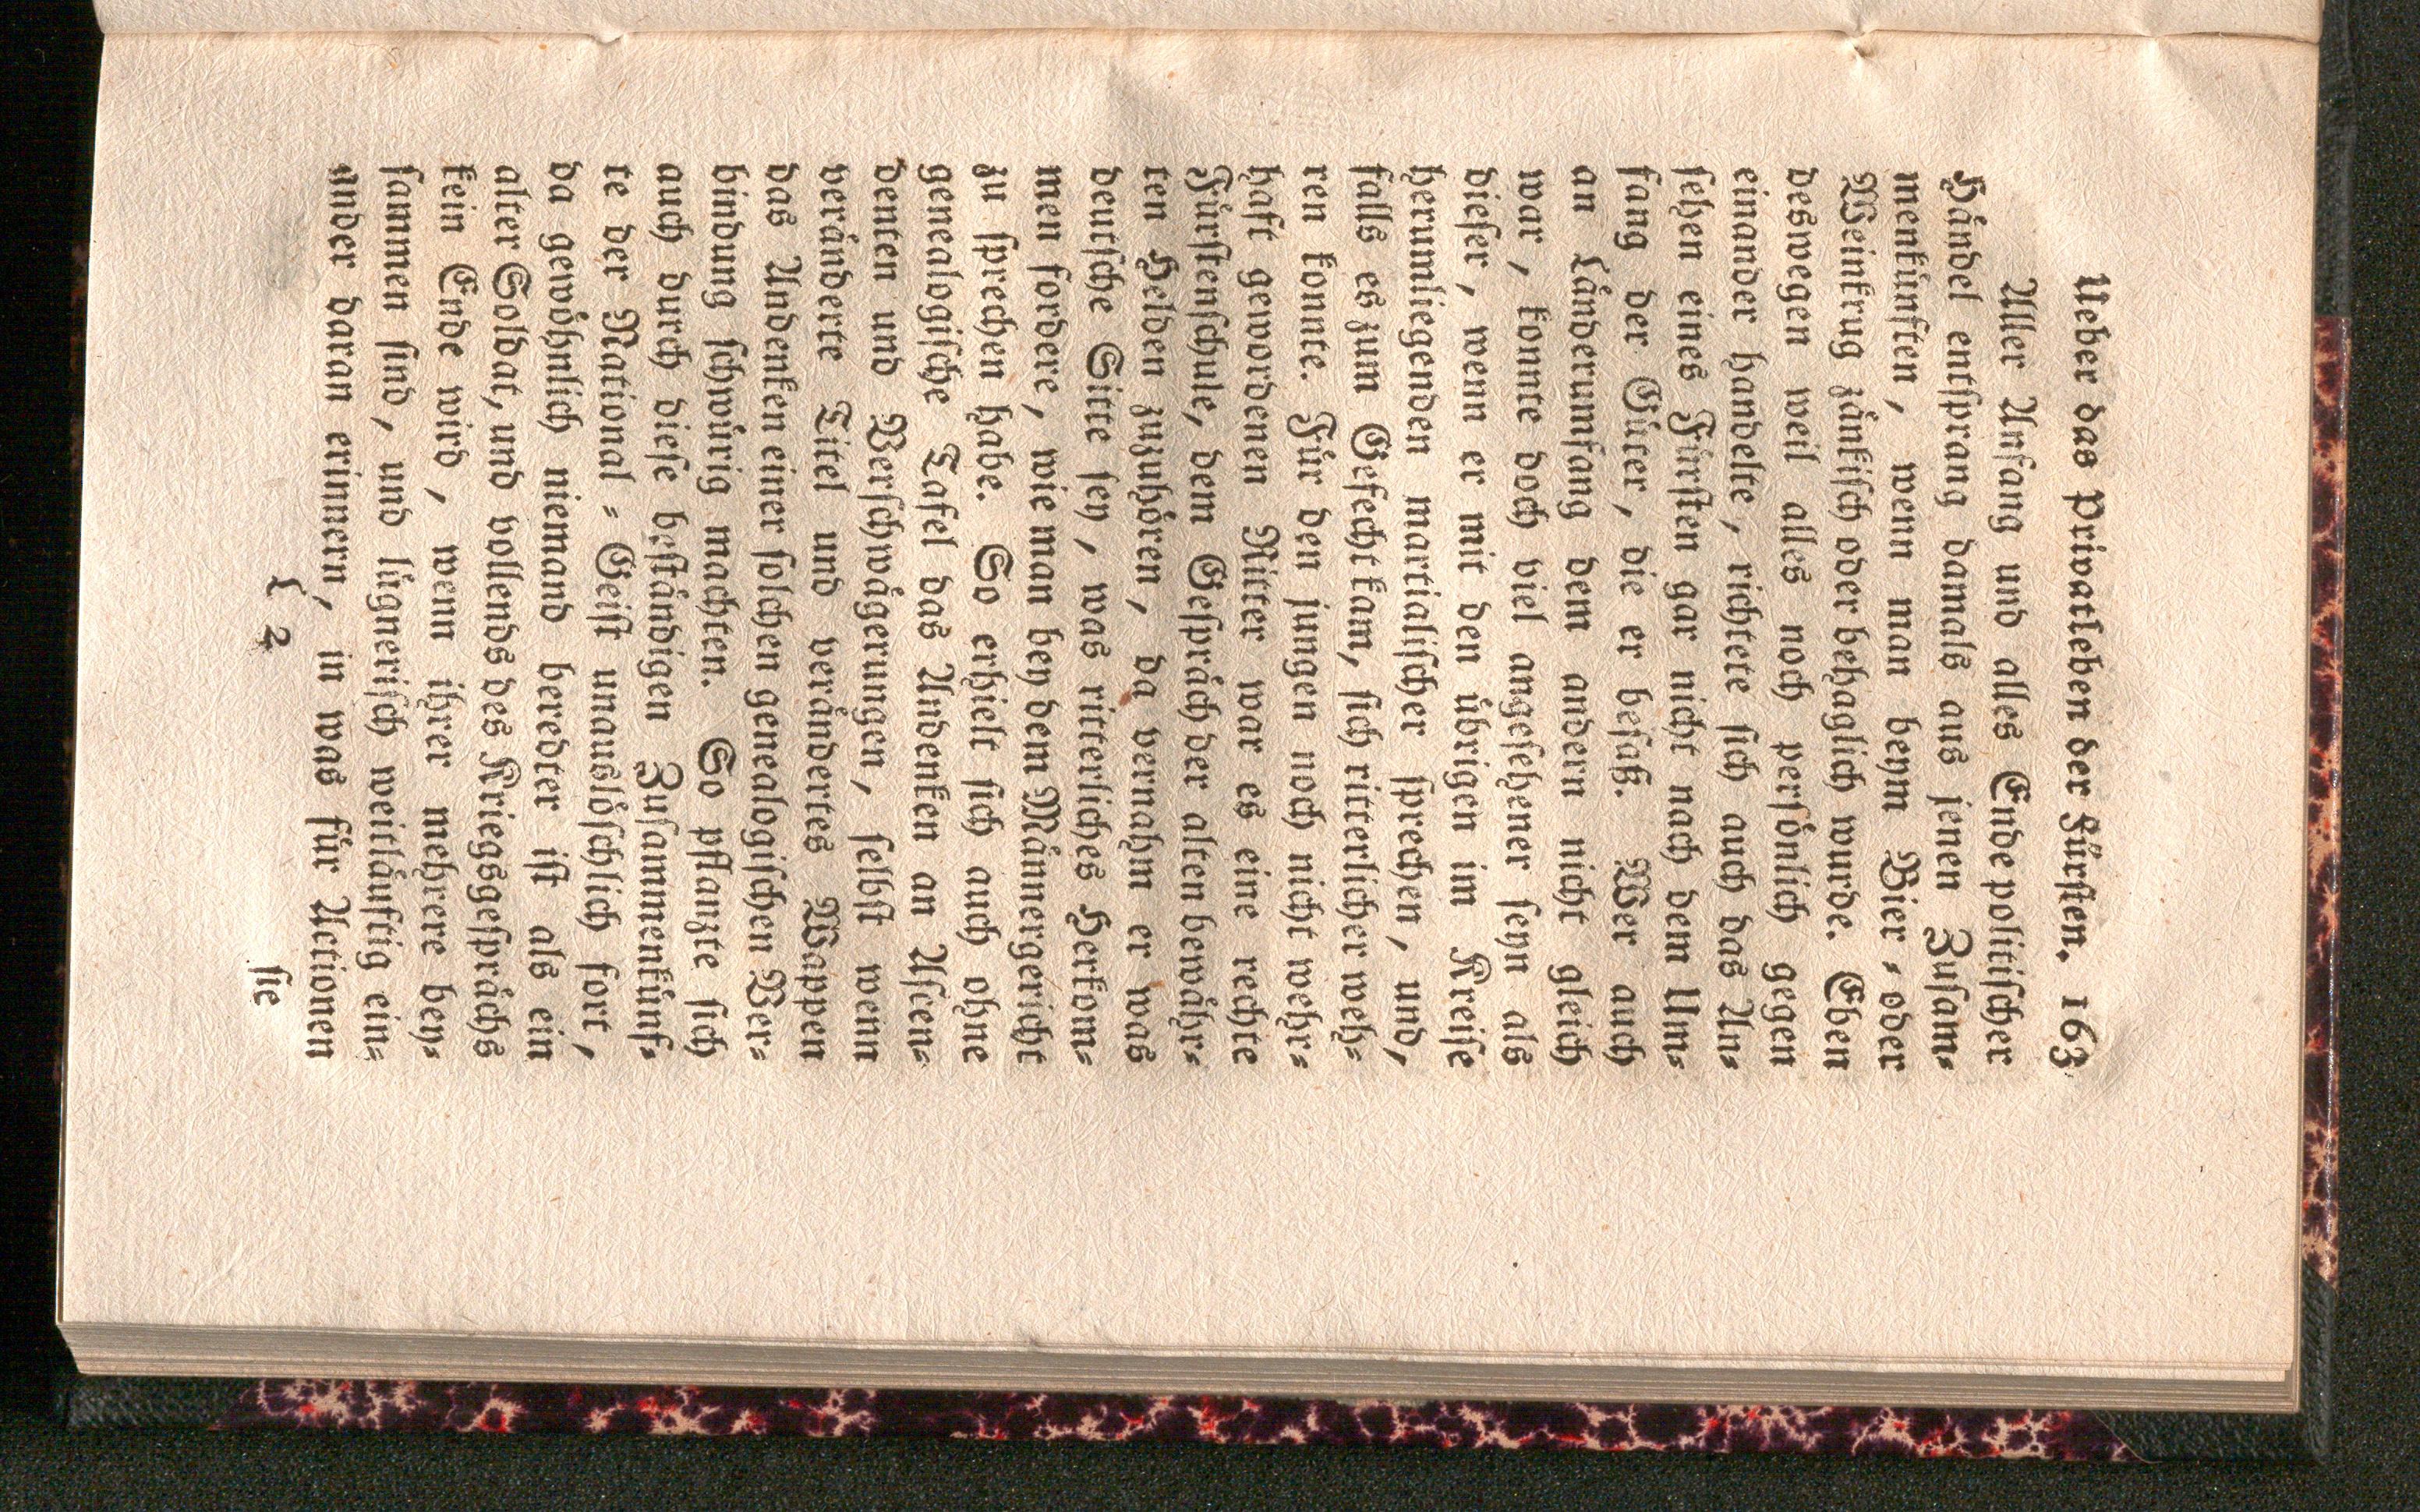 Ueber das Privatleben der Fürsten. 163
Aller Anfang und alles Ende politischer
Händel entsprang damals aus jenen Zusam⸗
menkünften, wenn man beym Bier⸗ oder
Weinkrug zänkisch oder behaglich wurde. Eben
deswegen weil alles noch persönlich gegen
einander handelte, richtete sich auch das An⸗
sehen eines Fürsten gar nicht nach dem Um⸗
fang der Güter, die er besaß. Wer auch
an Länderumfang dem andern nicht gleich
war, konnte doch viel angesehener seyn als
dieser, wenn er mit den übrigen im Kreise
herumliegenden martialischer sprechen, und,
falls es zum Gefecht kam, sich ritterlicher weh⸗
ren konnte. Für den jungen noch nicht wehr⸗
haft gewordenen Ritter war es eine rechte
Fürstenschule, dem Gespräch der alten bewähr⸗
ten Helden zuzuhören, da vernahm er was
deutsche Sitte sey, was ritterliches Herkom⸗
men fordere, wie man bey dem Männergericht
zu sprechen habe. So erhielt sich auch ohne
genealogische Tafel das Andenken an Ascen⸗
denten und Verschwägerungen, selbst wenn
veränderte Titel und verändertes Wappen
das Andenken einer solchen genealogischen Ver⸗
bindung schwürig machten. So pflanzte sich
auch durch diese beständigen Zusammenkünf⸗
te der National⸗Geist unauslöschlich fort,
da gewöhnlich niemand beredter ist als ein
alter Soldat, und vollends des Kriegsgesprächs
kein Ende wird, wenn ihrer mehrere bey⸗
sammen sind, und lügnerisch weitläuftig ein⸗
ander daran erinnern, in was für Actionen
L 2 sie